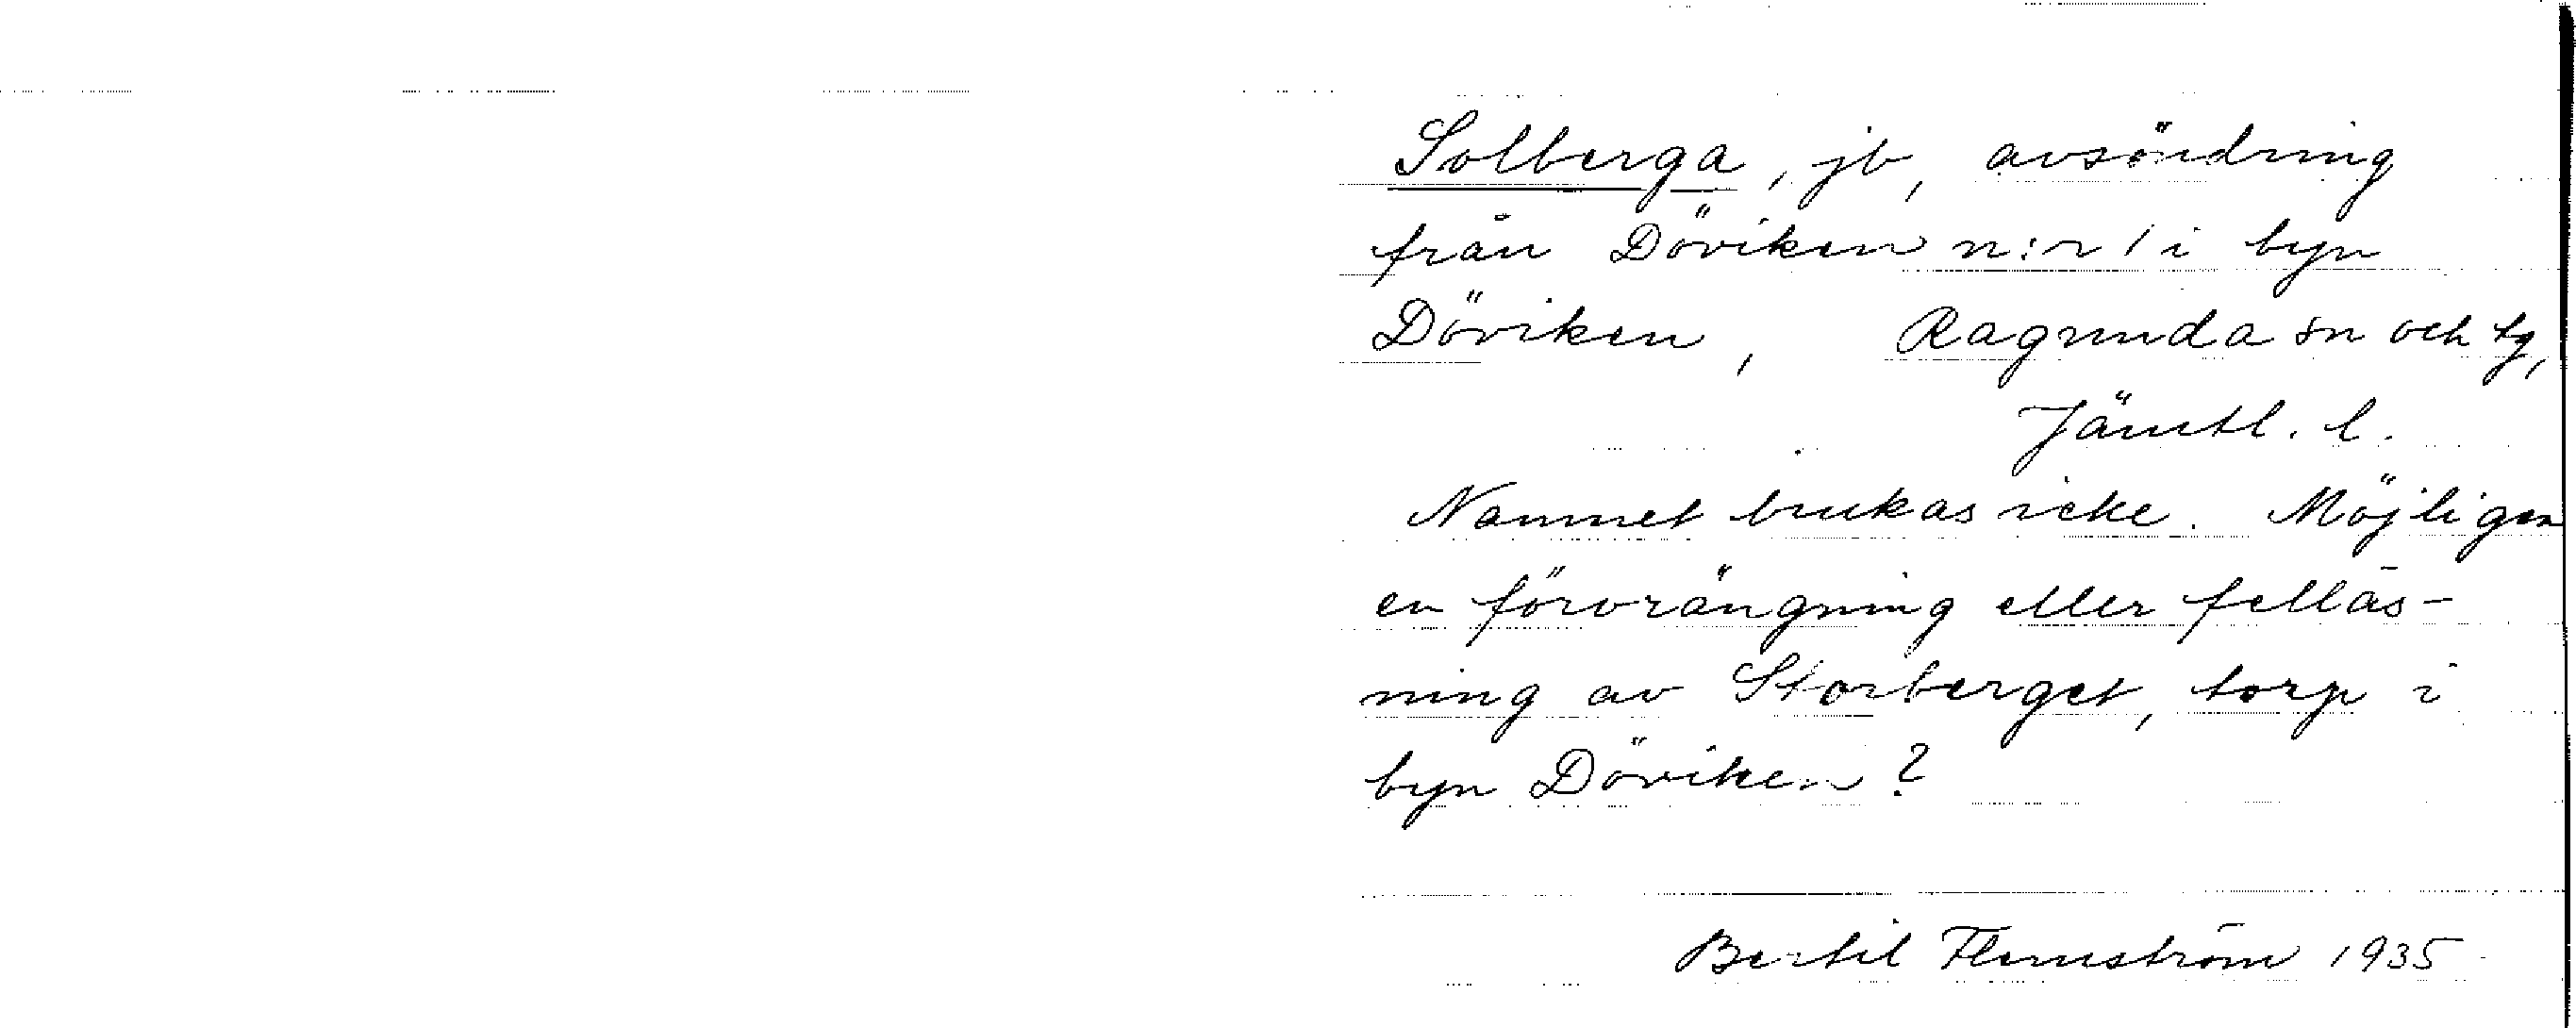 Solberga, jb, avsöndring
från Döviken n:r 1 i byn
Döviken, Ragunda sn och tg,
Jämtl. l.
Namnet brukas icke. Möjligen
en förvrängning eller felläs-
ning av Storberget, torp i
byn Döviken?
Bertil Flemström 1935